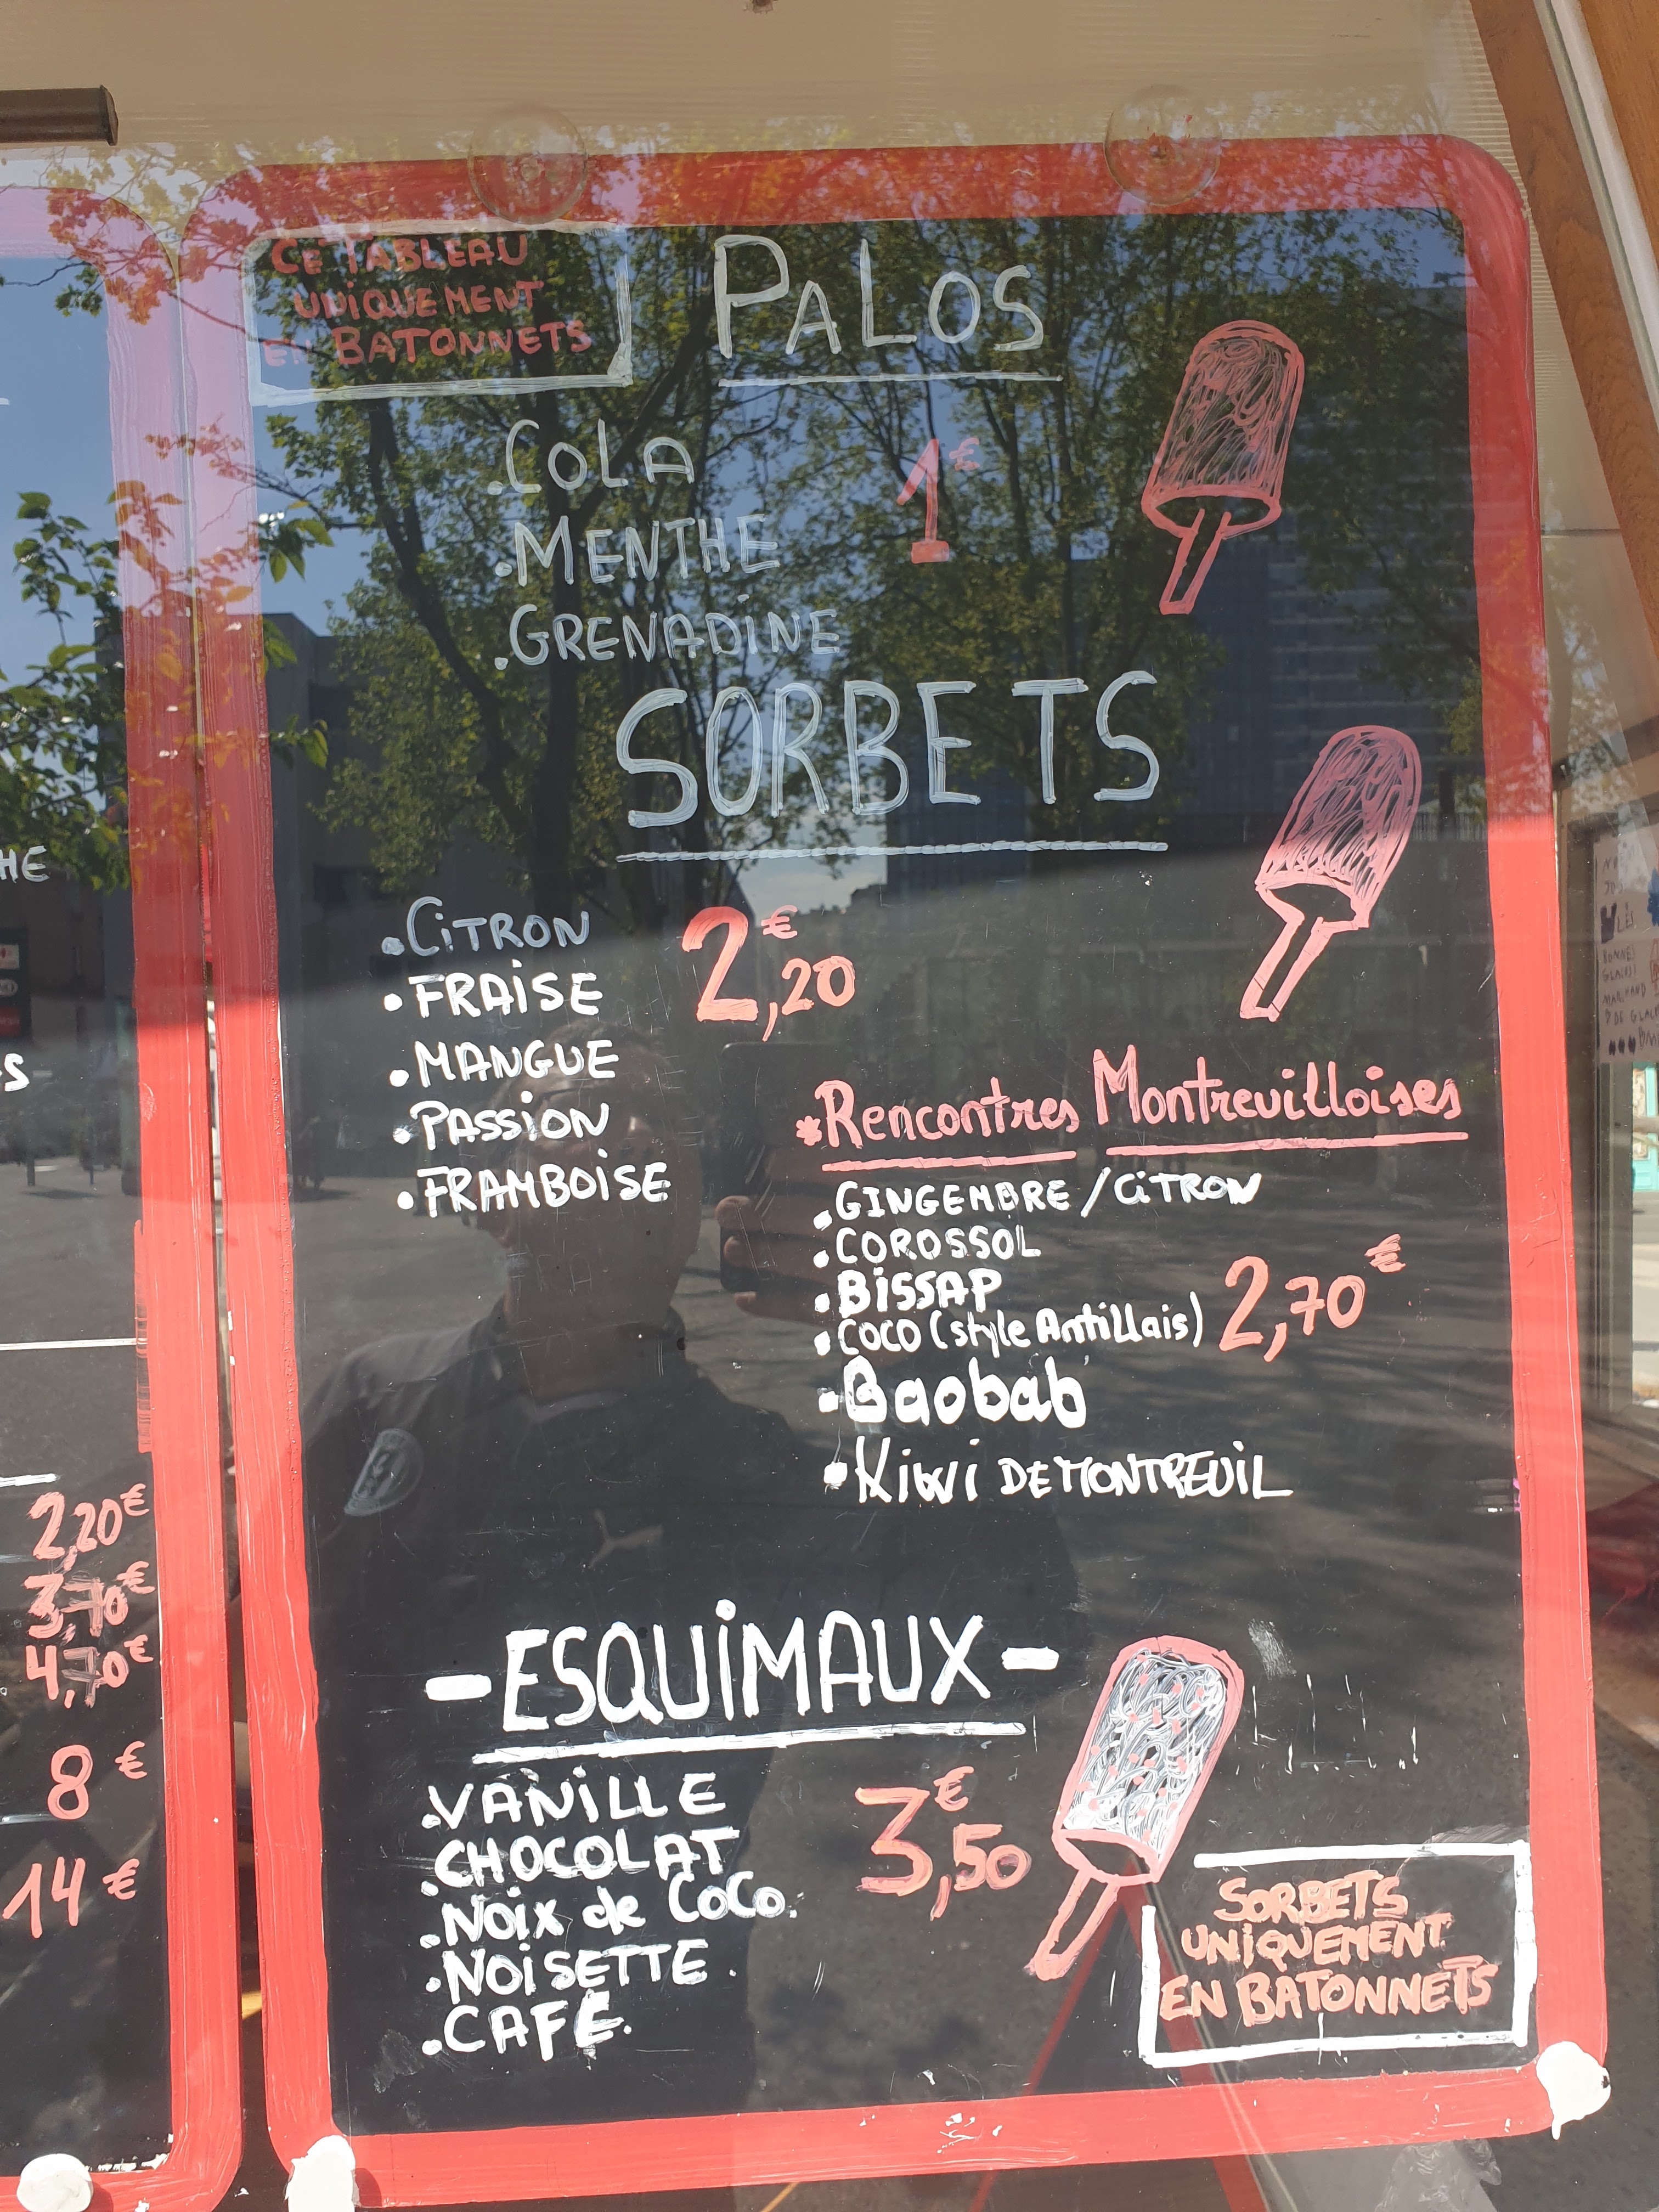 CE TABLEAU
UNIQUEMENT
EN BATONNETS
PALOS
.COLA
.MENTHE
.GRENADINE
1€
SORBETS
.CiTRON
.FRAiSE
.MANGUE
.PASSiON
.FRAMBOiSE
2,20€
*Rencontres Montreuilloises
.GINGEMBRE/CiTRON
.COROSSOL
.BiSSAP
.COCO (style Antillais)
.Baobab
.Kiwi DE MONTREUiL
2,70€
-ESQUiMAUX-
.VANiLLE
.CHOCOLAT
.NOiX de CoCo.
.NOiSETTE.
.CAFÉ.
3,50€
SORBETS
UNiQUEMENT
EN BATONNETS
HE
S
2,20€
3,70€
4,70€
8€
14€
LES
BONNES
GLACES
MARCHAND
DE GLAC